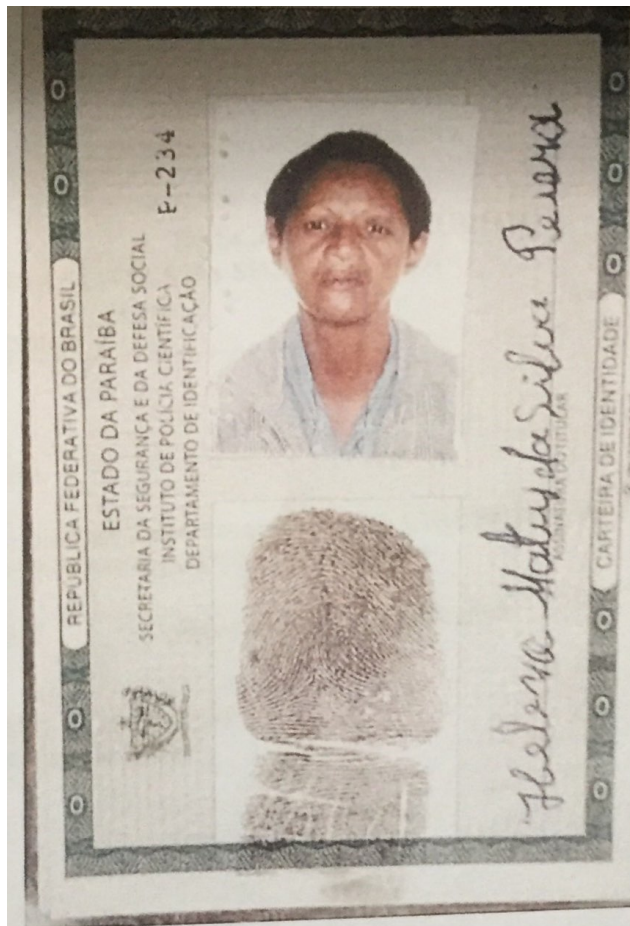 REPÚBLICA FEDERATIVA DO BRASIL
ESTADO DA PARAÍBA
SECRETARIA DA SEGURANÇA E DA DEFESA SOCIAL
INSTITUTO DE POLÍCIA CIENTÍFICA
DEPARTAMENTO DE IDENTIFICAÇÃO
P-234
da Silva Pereira
ASSINATURA DO TITULAR
CARTEIRA DE IDENTIDADE